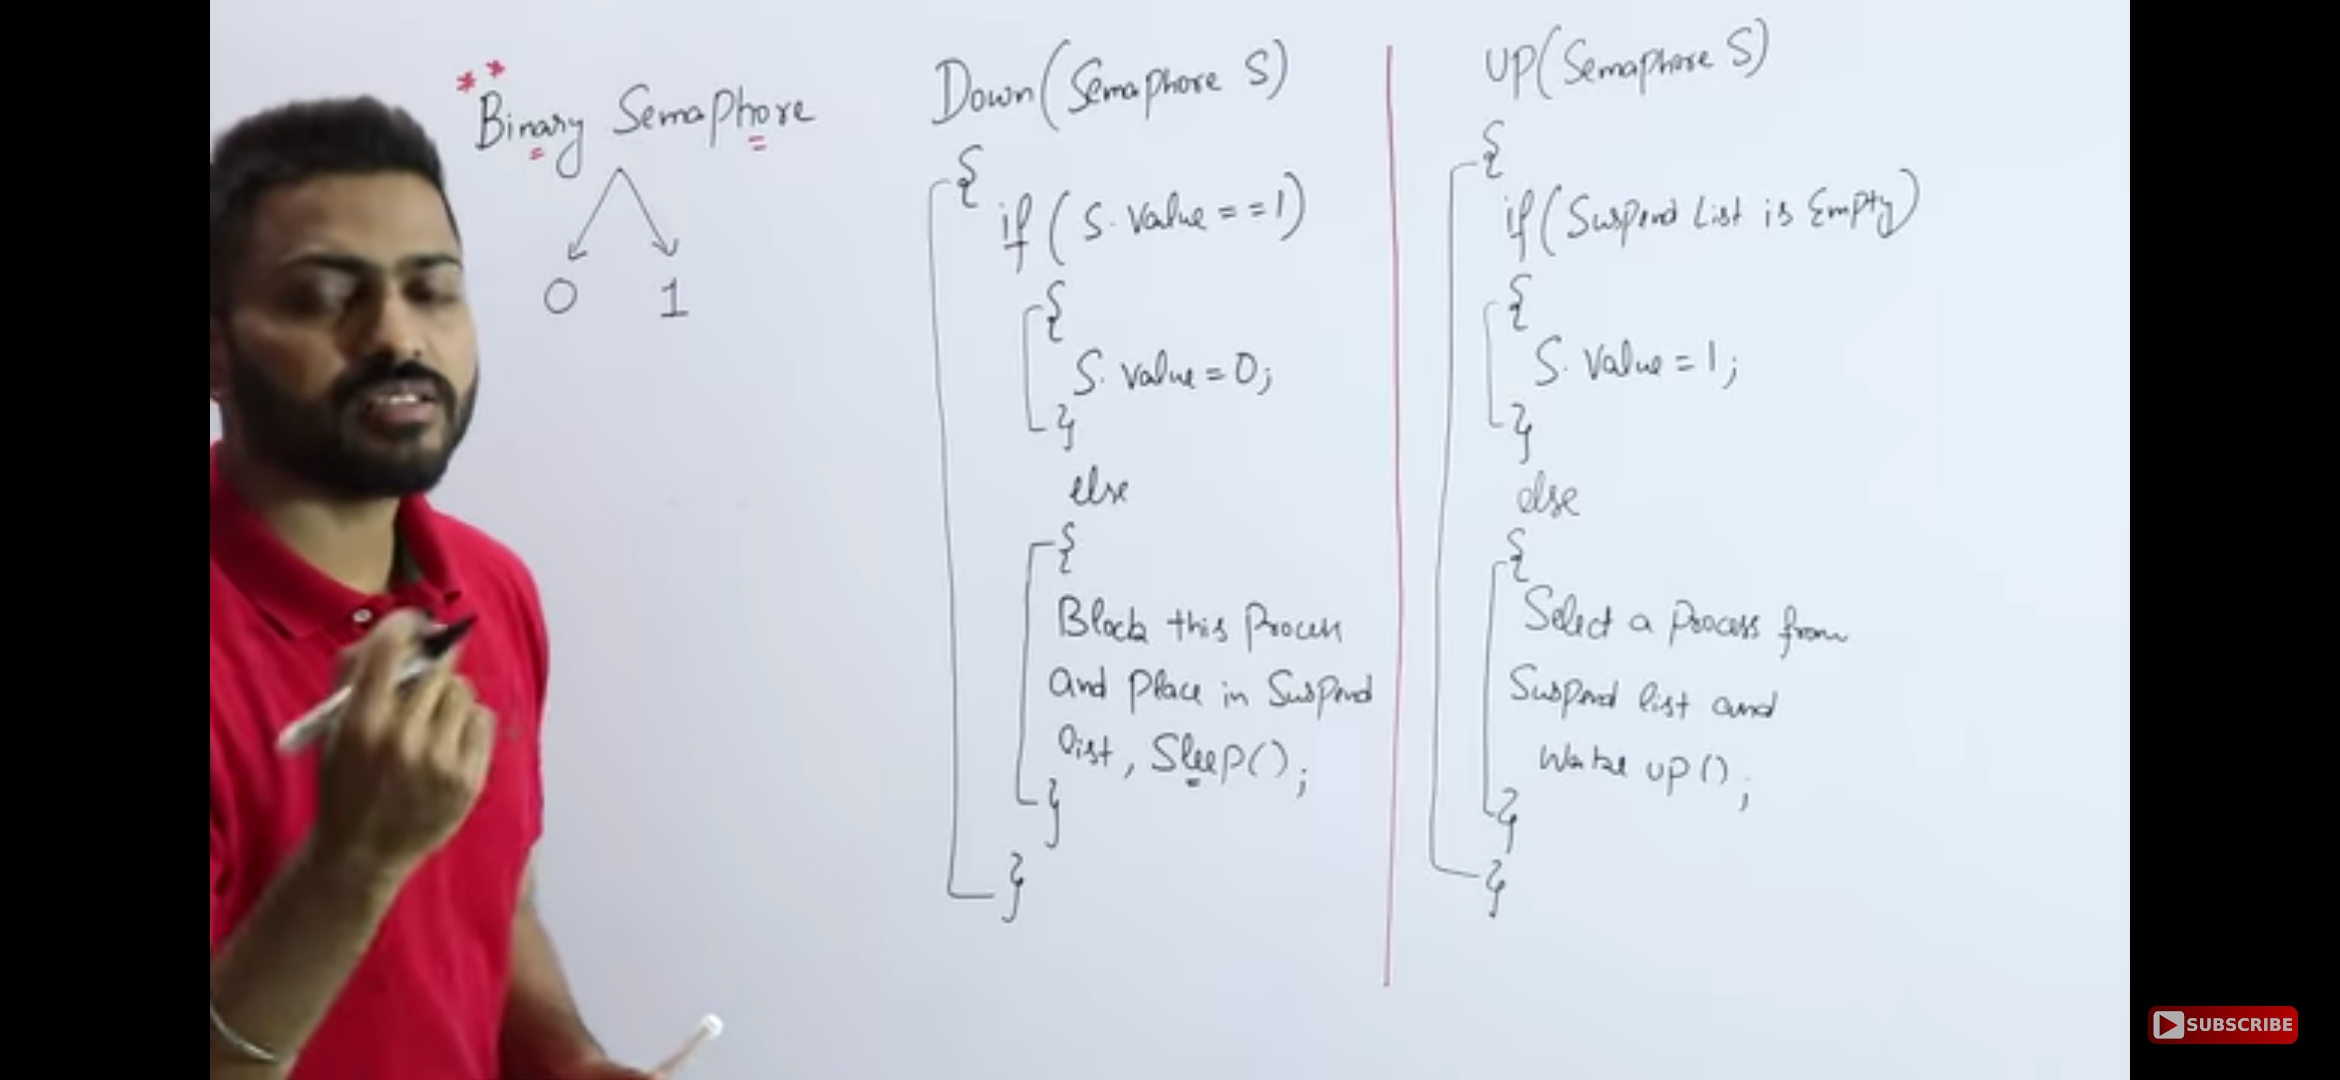 **
Binary Semaphore
0 1
Down(Semaphore S)
{
if (S.Value==1)
{
S.Value=0;
}
else
{
Block this Process
and place in Suspend
list, Sleep();
}
}
UP(Semaphore S)
{
if(Suspend List is Empty)
{
S.Value=1;
}
else
{
Select a Process from
Suspend list and
Wake up();
}
}
SUBSCRIBE